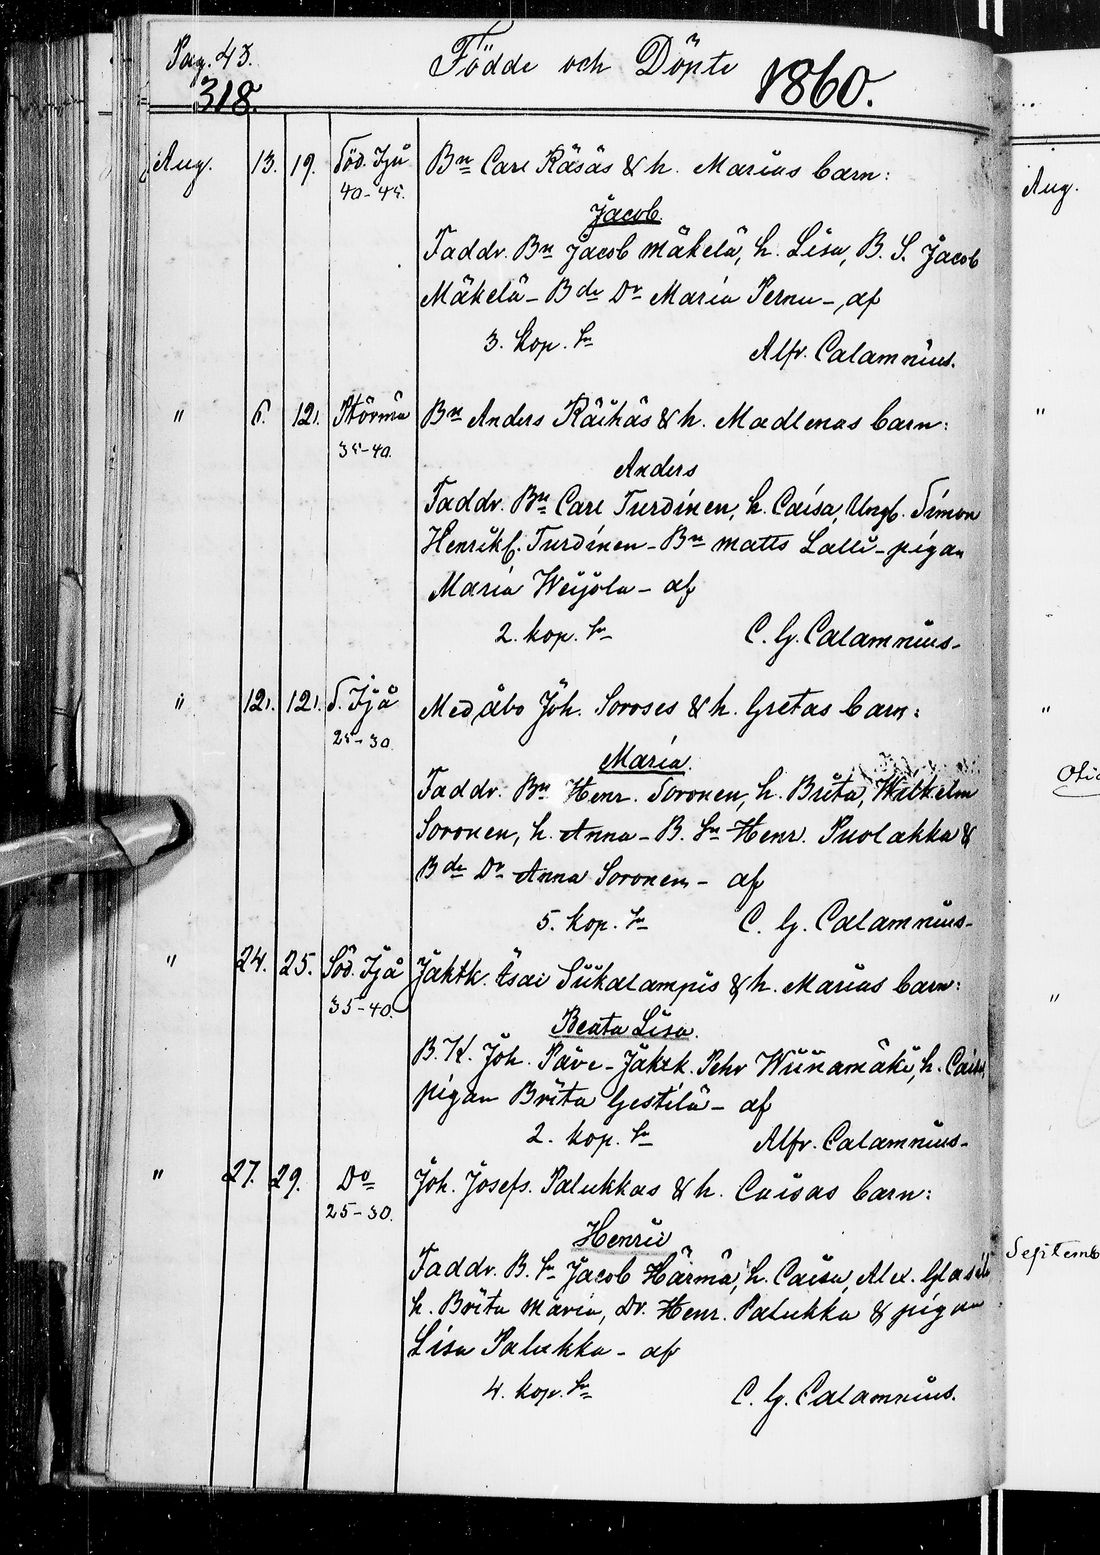 Pag. 43.
318.
Födde och Döpte 1860.
Aug. 13. 19. Söd. Ijå Bn Carl Räsäs & h. Marias barn:
40-45.
Jacob.
Faddr. Bn Jacob Mäkelä, h. Lisa, B. S. Jacob
Mäkelä - Bde Dr Maria Pernu - af
3. kop. Sr Alfr. Calamnius.
" 6. 12. Störmä Bn Anders Räihäs & h. Madlenas barn:
35-40.
Anders
Faddr. Bn Carl Turdinen, h. Caisa, Ungk. Simon
Henrikss. Turdinen - Bn Matts Lalli - pigan
Maria Weijola - af
2. kop. Sr C. G. Calamnius -
" 12. 12. S. Ijå Medåbo Joh. Soroses & h. Gretas barn:
25-30.
Maria.
Faddr. Bn Henr. Soronen, h. Brita, Wilhelm
Soronen, h. Anna - B. Sn Henr. Puolakka &
Bde Dr Anna Soronen - af
5. kop. Sr C. G. Calamnius -
" 24. 25. Söd. Ijå Jaktk. Esai Siikalampis & h. Marias barn:
35-40.
Beata Lisa.
B. K. Joh. Päve - Jaktk. Pehr Wiinamäki, h. Caisa,
pigan Brita Gestilä - af
2. kop. Sr Alfr. Calamnius -
" 27. 29. Do Joh. Josefs. Palukkas & h. Caisas barn:
25-30.
Henric
Faddr. B. Sn Jacob Härmä, h. Caisa, Alex.
h. Brita Maria, Dr. Henr. Palukka & pigan
Lisa Palukka - af
4. kop. Sr C. G. Calamnius.
Aug.
"
"
"